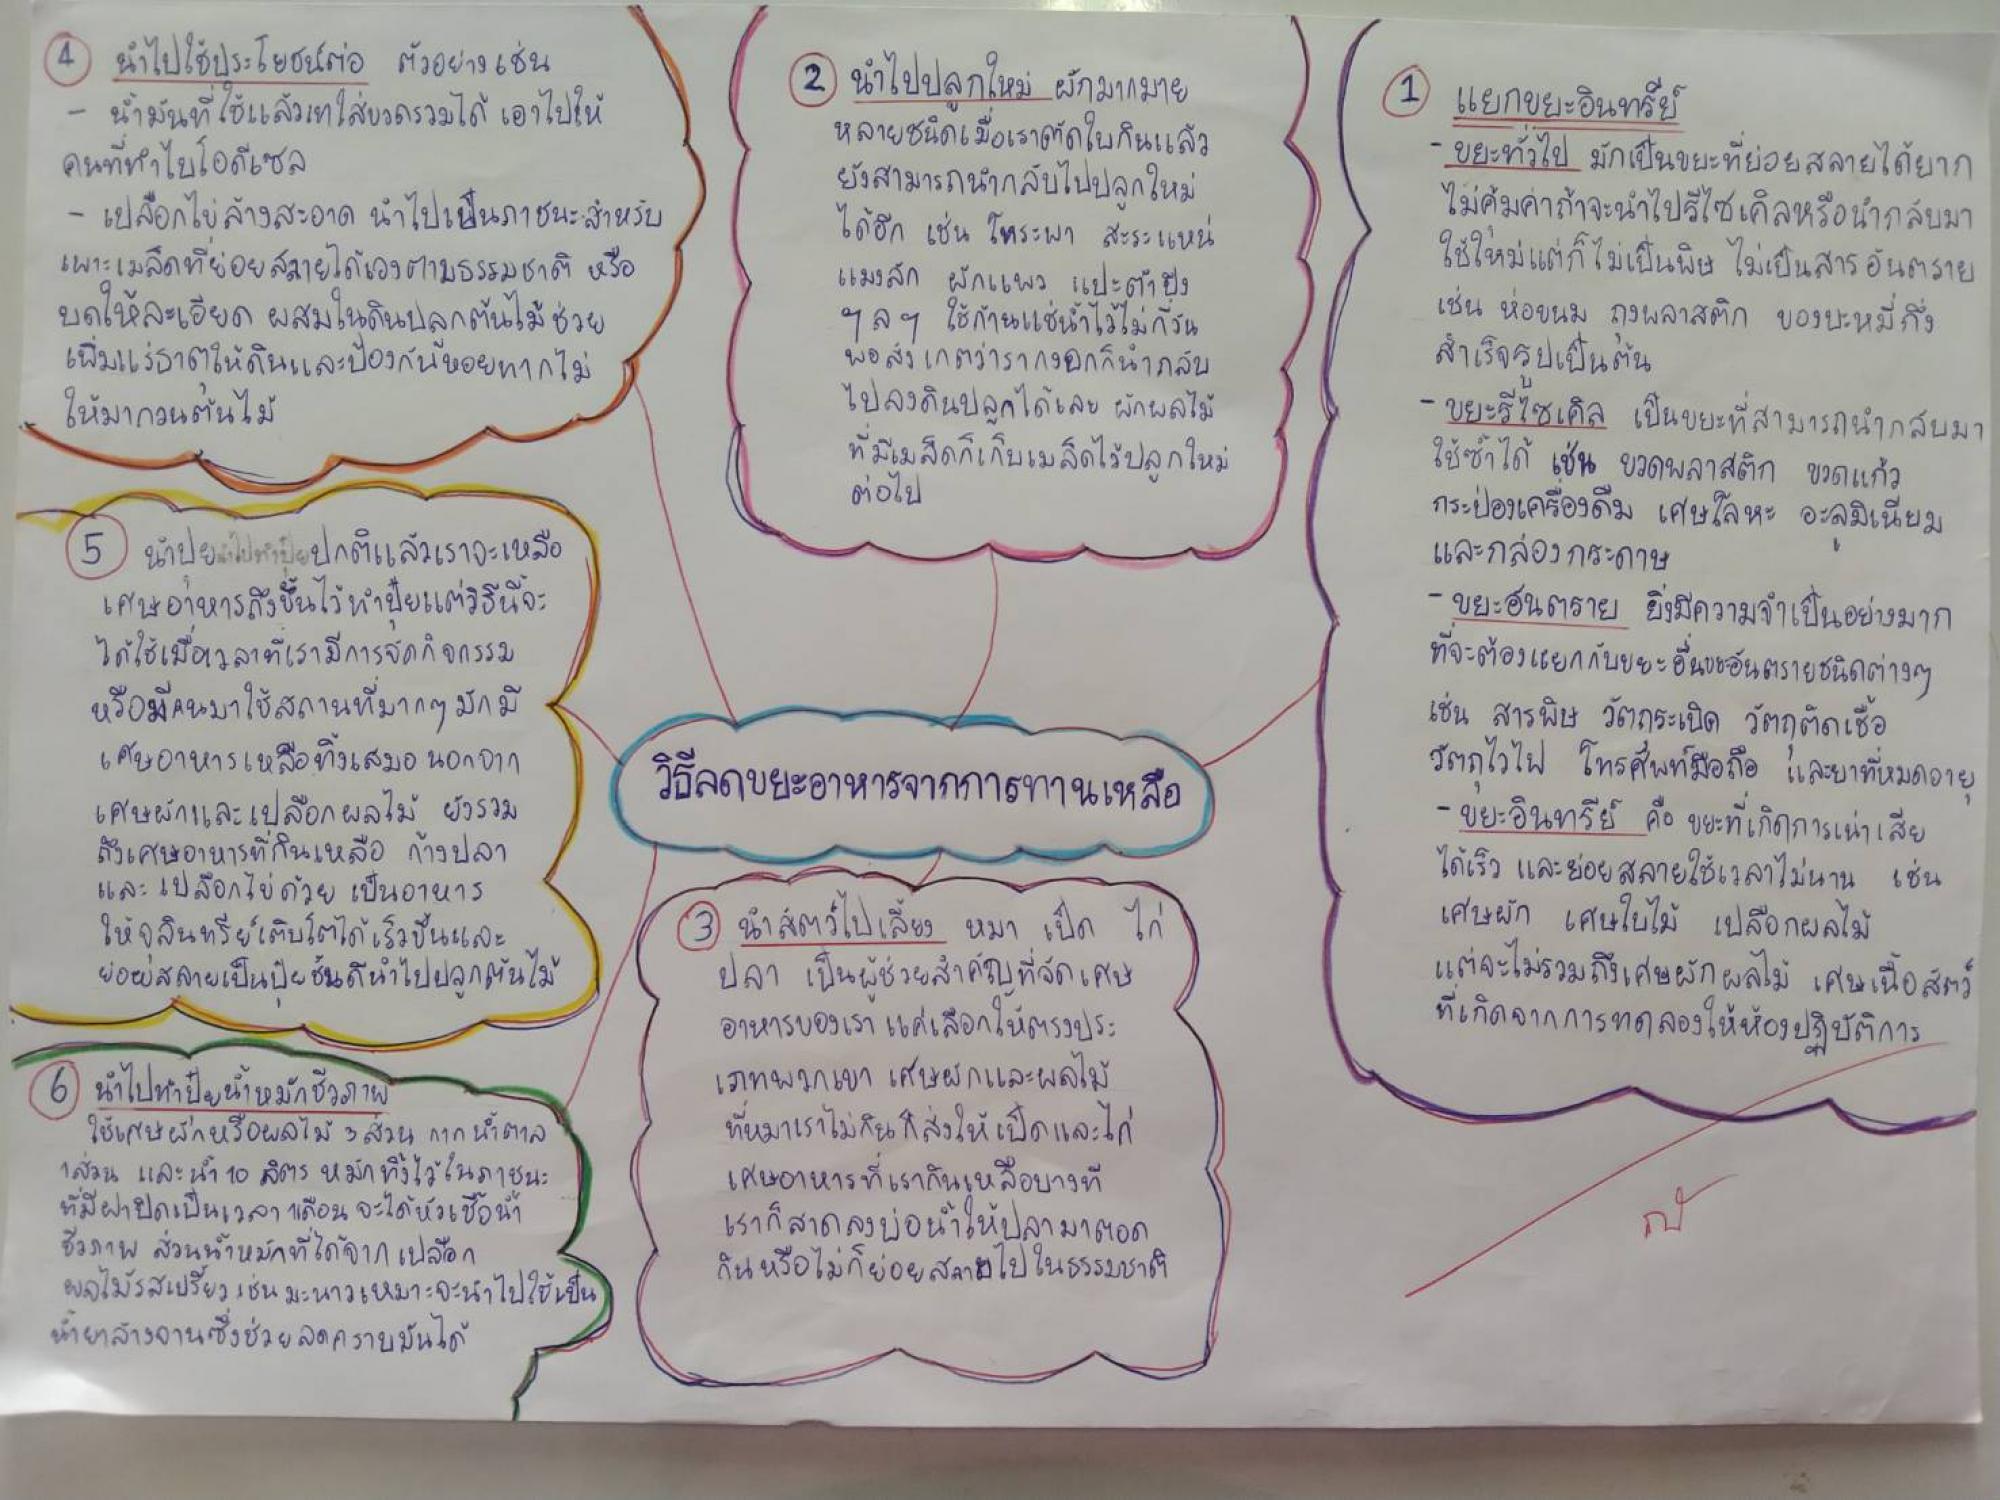 วิธีลดขยะอาหารจากการทานเหลือ
1 แยกขยะอินทรีย์
- ขยะทั่วไป มักเป็นขยะที่ย่อยสลายได้ยาก
ไม่คุ้มค่าถ้าจะนำไปรีไซเคิลหรือนำกลับมา
ใช้ใหม่แต่ก็ไม่เป็นพิษ ไม่เป็นสารอันตราย
เช่น ห่อขนม ถุงพลาสติก ซองบะหมี่กึ่ง
สำเร็จรูปเป็นต้น
- ขยะรีไซเคิล เป็นขยะที่สามารถนำกลับมา
ใช้ซ้ำได้ เช่น ขวดพลาสติก ขวดแก้ว
กระป่องเครื่องดื่ม เศษโลหะ อะลูมิเนียม
และกล่องกระดาษ
- ขยะอันตราย ยิ่งมีความจำเป็นอย่างมาก
ที่จะต้องแยกกับขยะอื่นขยะอันตรายชนิดต่างๆ
เช่น สารพิษ วัตถุระเบิด วัตถุติดเชื้อ
วัตถุไวไฟ โทรศัพท์มือถือ และยาที่หมดอายุ
- ขยะอินทรีย์ คือ ขยะที่เกิดการเน่าเสีย
ได้เร็ว และย่อยสลายใช้เวลาไม่นาน เช่น
เศษผัก เศษใบไม้ เปลือกผลไม้
แต่จะไม่รวมถึงเศษผักผลไม้ เศษเนื้อสัตว์
ที่เกิดจากการทดลองให้ห้องปฏิบัติการ
2 นำไปปลูกใหม่ ผักมากมาย
หลายชนิดเมื่อเราตัดใบกินแล้ว
ยังสามารถนำกลับไปปลูกใหม่
ได้อีก เช่น โหระพา สะระแหน่
แมงลัก ผักแพว แปะตำปึง
ฯลฯ ใช้ก้านแช่น้ำไว้ไม่กี่วัน
พอสังเกตว่ารากงอกก็นำกลับ
ไปลงดินปลูกได้เลย ผักผลไม้
ที่มีเมล็ดก็เก็บเมล็ดไว้ปลูกใหม่
ต่อไป
3 นำสัตว์ไปเลี้ยง หมา เป็ด ไก่
ปลา เป็นผู้ช่วยสำคัญที่จัดเศษ
อาหารของเรา แค่เลือกให้ตรงประ
เภทพวกเขา เศษผักและผลไม้
ที่หมาเราไม่กินก็ส่งให้เป็ดและไก่
เศษอาหารที่เรากินเหลือบางที
เราก็สาดลงบ่อน้ำให้ปลามาตอด
กินหรือไม่ก็ย่อยสลายไปในธรรมชาติ
4 นำไปใช้ประโยชน์ต่อ ตัวอย่างเช่น
- น้ำมันที่ใช้แล้วเทใส่ขวดรวมได้ เอาไปให้
คนที่ทำไบโอดีเซล
- เปลือกไข่ล้างสะอาด นำไปเป็นภาชนะสำหรับ
เพาะเมล็ดที่ย่อยสลายได้เองตามธรรมชาติ หรือ
บดให้ละเอียด ผสมในดินปลูกต้นไม้ช่วย
เพิ่มแร่ธาตุให้ดินและป้องกันหอยทากไม่
ให้มากวนต้นไม้
5 นำปุยนำไปทำปุ๋ยปกติแล้วเราจะเหลือ
เศษอาหารถึงขึ้นไว้ทำปุ๋ยแต่วิธีนี้จะ
ได้ใช้เมื่อเวลาที่เรามีการจัดกิจกรรม
หรือมีคนมาใช้สถานที่มากๆ มักมี
เศษอาหารเหลือทิ้งเสมอ นอกจาก
เศษผักและเปลือกผลไม้ ยังรวม
ถึงเศษอาหารที่กินเหลือ ก้างปลา
และ เปลือกไข่ด้วย เป็นอาหาร
ให้จุลินทรีย์เติบโตได้เร็วขึ้นและ
ย่อยสลายเป็นปุ๋ยชั้นดีนำไปปลูกต้นไม้
6 นำไปทำปุ๋ยน้ำหมักชีวภาพ
ใช้เศษผักหรือผลไม้ 3 ส่วน กากน้ำตาล
1 ส่วน และน้ำ 10 ลิตร หมักทิ้งไว้ในภาชนะ
ที่มีฝาปิดเป็นเวลา 1 เดือน จะได้หัวเชื้อน้ำ
ชีวภาพ ส่วนน้ำหมักที่ได้จาก เปลือก
ผลไม้รสเปรี้ยว เช่น มะนาวเหมาะจะนำไปใช้เป็น
น้ำยาล้างจานซึ่งช่วยลดคราบมันได้